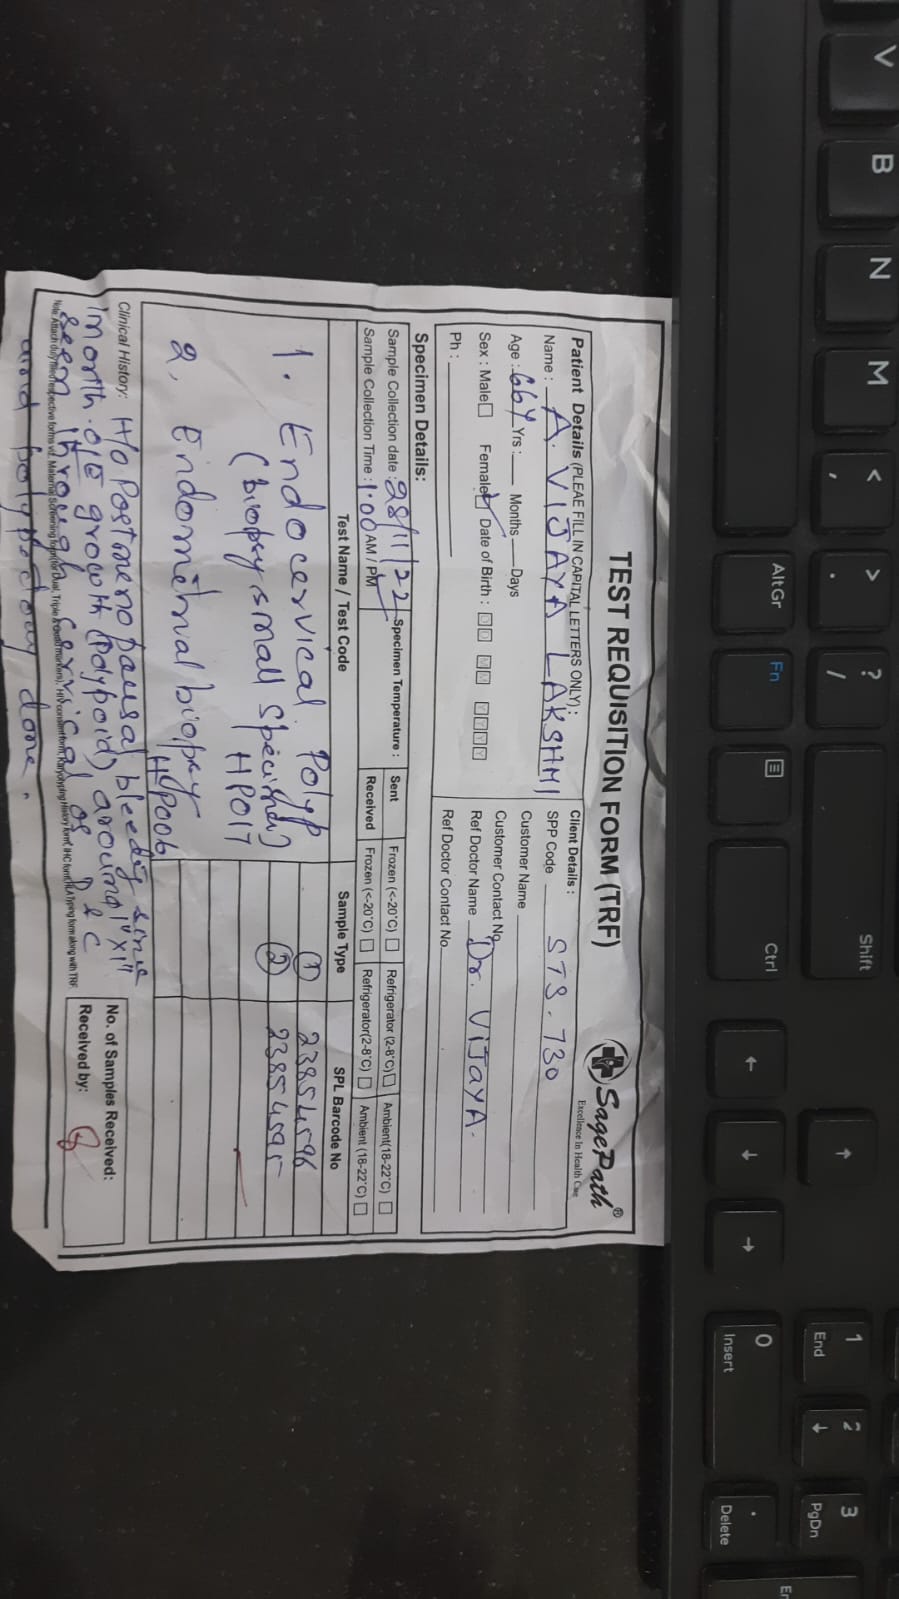 TEST REQUISITION FORM (TRF)
SagePath®
Excellence In Health Care
Patient Details (PLEAE FILL IN CAPITAL LETTERS ONLY):
Name : A. VIJAYA LAKSHMI
Age : 66Y Yrs : Months Days
Sex : Male Female Date of Birth : D D M M Y Y Y Y
Ph :
Client Details :
SPP Code STS. 730
Customer Name
Customer Contact No
Ref Doctor Name Dr. VIJAYA.
Ref Doctor Contact No
Specimen Details:
Sample Collection date : 28/11/22 Specimen Temperature : Sent Frozen (<-20°C) Refrigerator (2-8°C) Ambient(18-22°C)
Sample Collection Time : 1.00 AM / PM Received Frozen (<-20°C) Refrigerator(2-8°C) Ambient (18-22°C)
Test Name / Test Code Sample Type SPL Barcode No
1. Endocervical Polyp ① 23854596
(biopsy small specimen) ② 23854595
HP017
2. Endometrial biopsy
HP006
Clinical History: H/o Postmenopausal bleeding since
1 month. O/E growth (polypoid) around 1"x1"
seen through cervical os D&C
and polypectomy done.
No. of Samples Received:
Received by:
V
B
N
M
< ,
> .
? /
Shift
AltGr
Fn
Ctrl
1 End
2
3 PgDn
0 Insert
. Delete